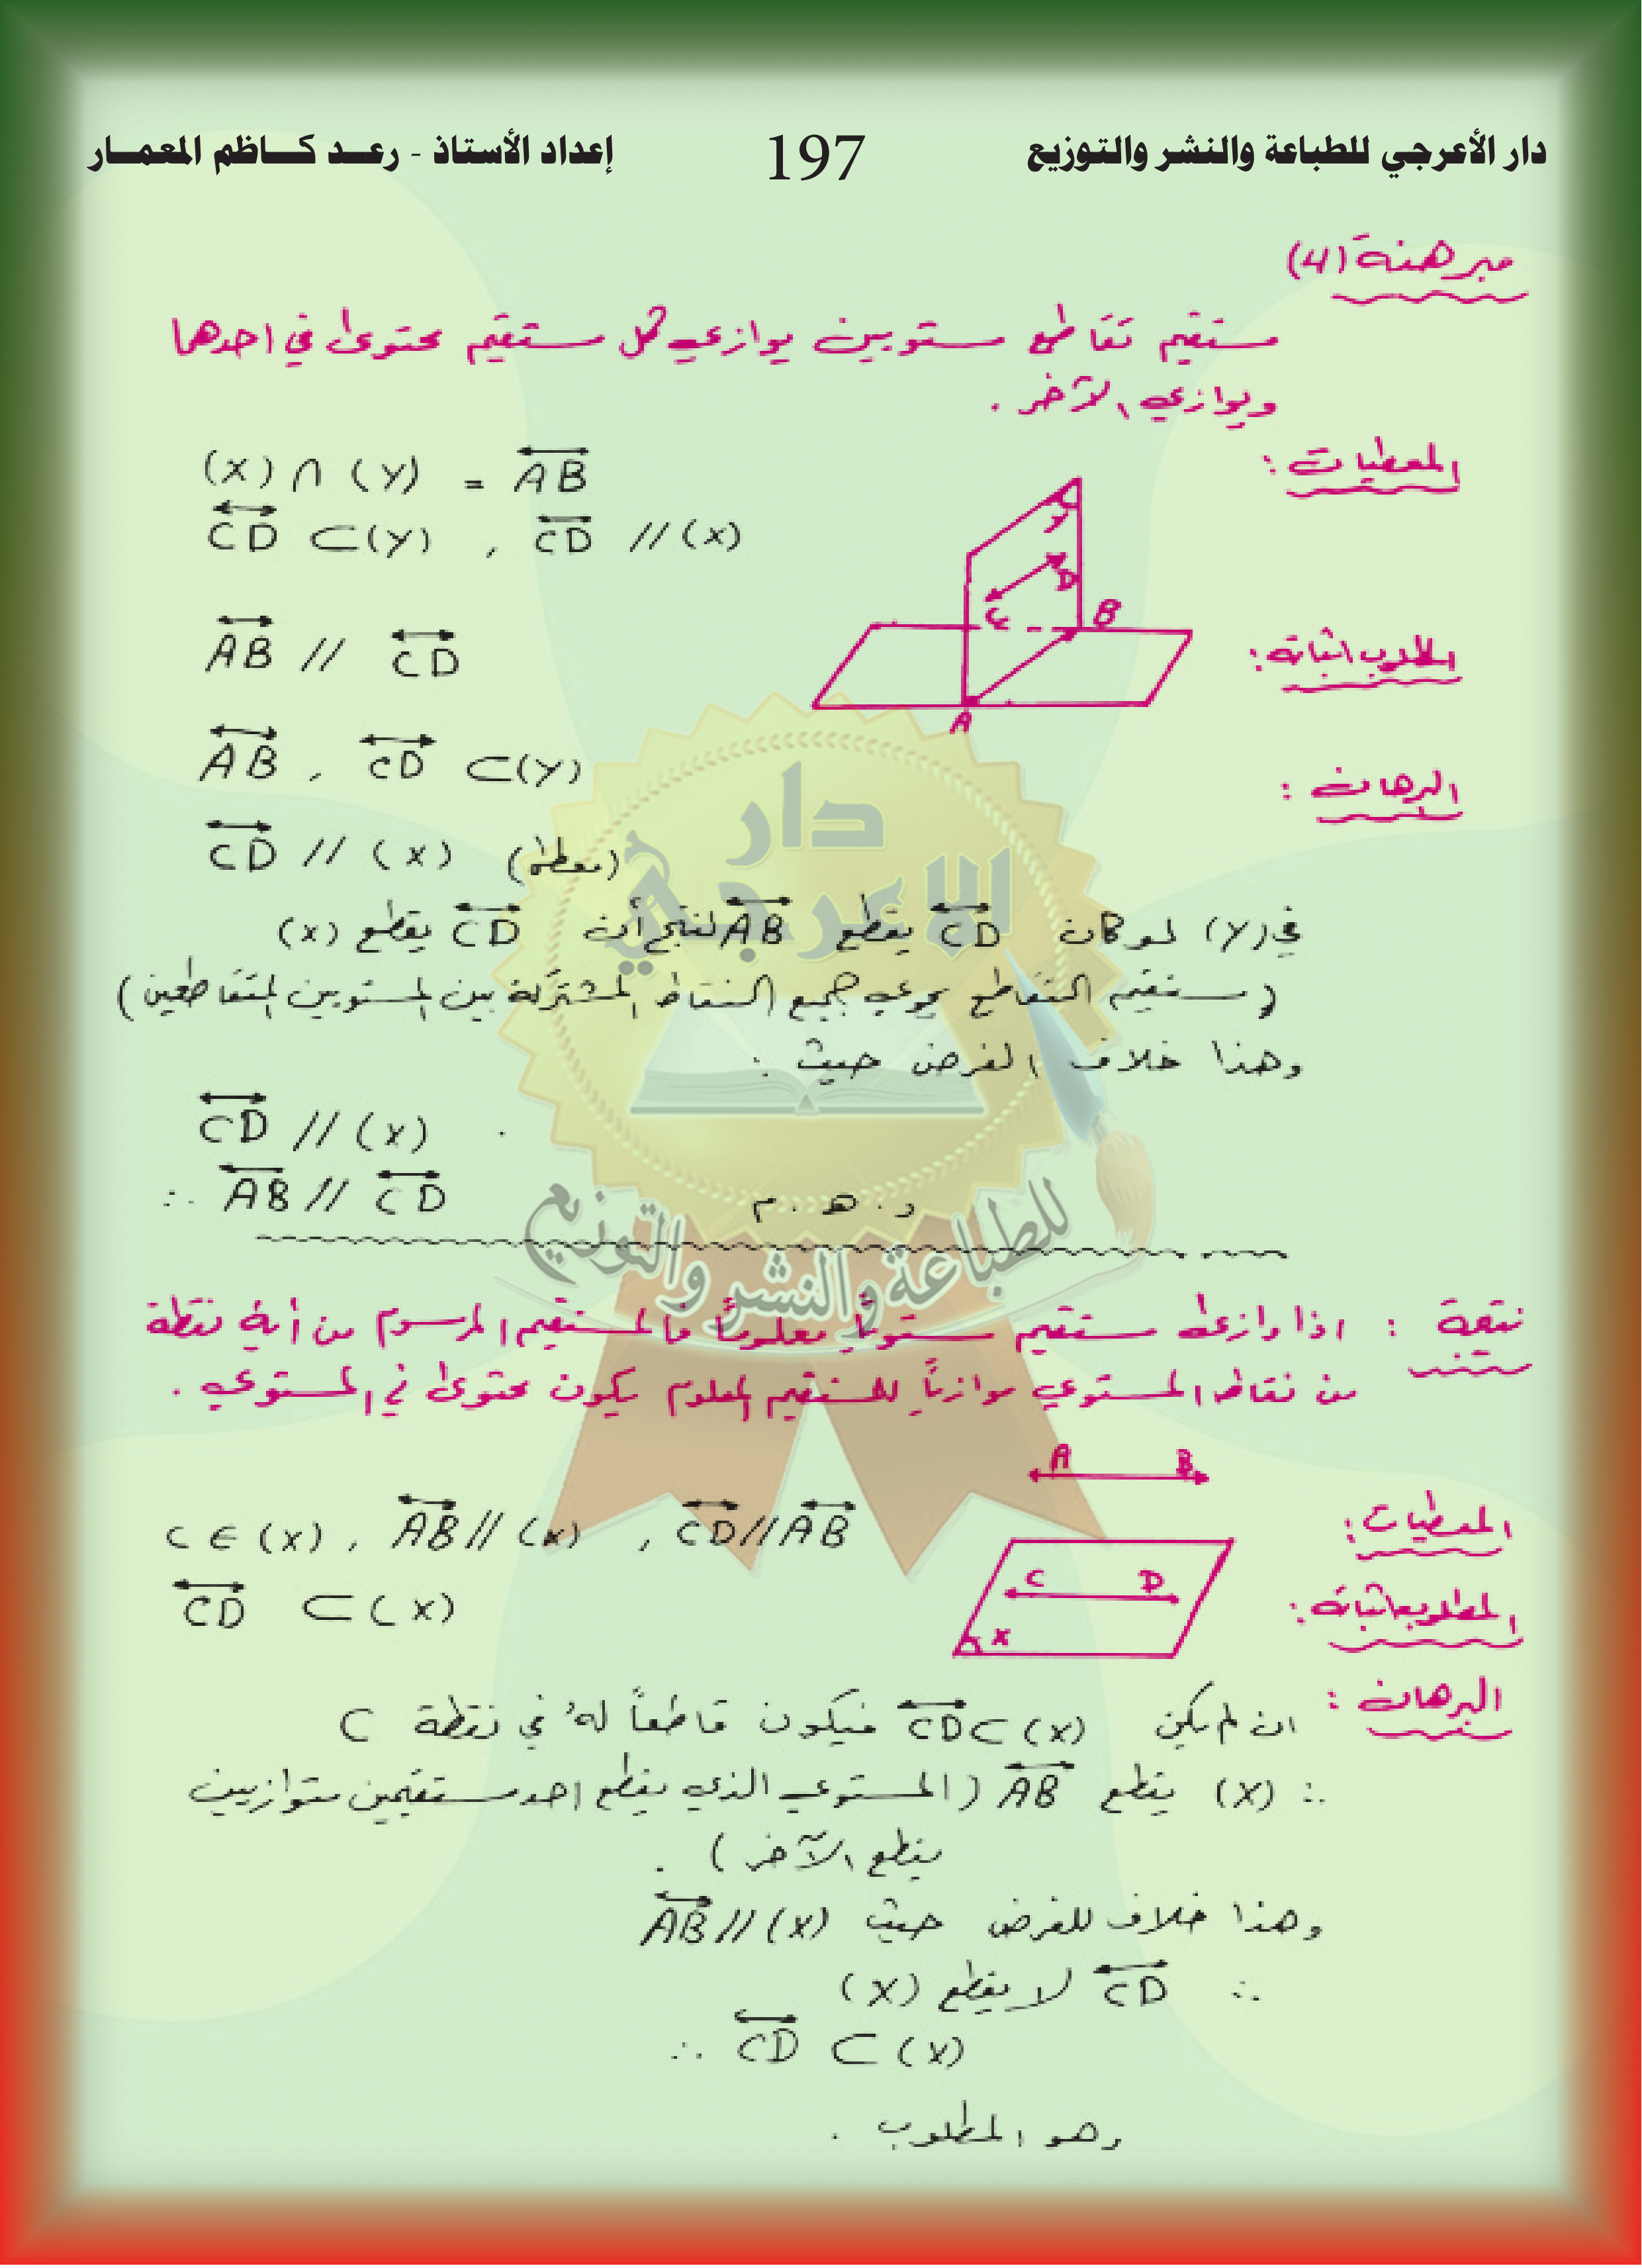 دار الأعرجي للطباعة والنشر والتوزيع 197 إعداد الأستاذ - رعد كاظم المعمار
مبرهنة (4)
مستقيم تقاطع مستويين يوازي كل مستقيم محتوى في احدهما
ويوازي الآخر .
المعطيات : (X) ∩ (Y) = AB
CD ⊂ (Y) , CD // (X)
Y
D
C
B
A
المطلوب اثباته : AB // CD
البرهان : AB , CD ⊂ (Y)
CD // (X) (معطى)
في (Y) لو كان CD يقطع AB لنتج أن CD يقطع (X)
(مستقيم التقاطع يحوي جميع النقاط المشتركة بين المستويين المتقاطعين)
وهذا خلاف الفرض حيث :
CD // (X) .
∴ AB // CD
و . هـ . م
دار
الاعرجي
للطباعة والنشر والتوزيع
نتيجة : اذا وازى مستقيم مستوياً معلوماً فالمستقيم المرسوم من أية نقطة
من نقاط المستوي موازياً للمستقيم المعلوم يكون محتوى في المستوي .
A B
المعطيات : C ∈ (X) , AB // (X) , CD // AB
C D
X
المطلوب اثباته : CD ⊂ (X)
البرهان : ان لم يكن CD ⊂ (X) فيكون قاطعاً لهُ في نقطة C
∴ (X) يقطع AB (المستوي الذي يقطع احد مستقيمين متوازيين
يقطع الآخر) .
وهذا خلاف للفرض حيث AB // (X)
∴ CD لا يقطع (X)
∴ CD ⊂ (X)
وهو المطلوب .